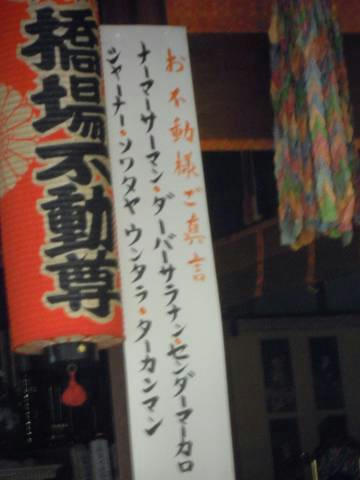 お不動様ご真言
ナーマーサーマン・ダーバーサラナン・センダーマーカロ
シャーナー・ソワタヤ ウンタラ・ターカンマン
橋場不動尊